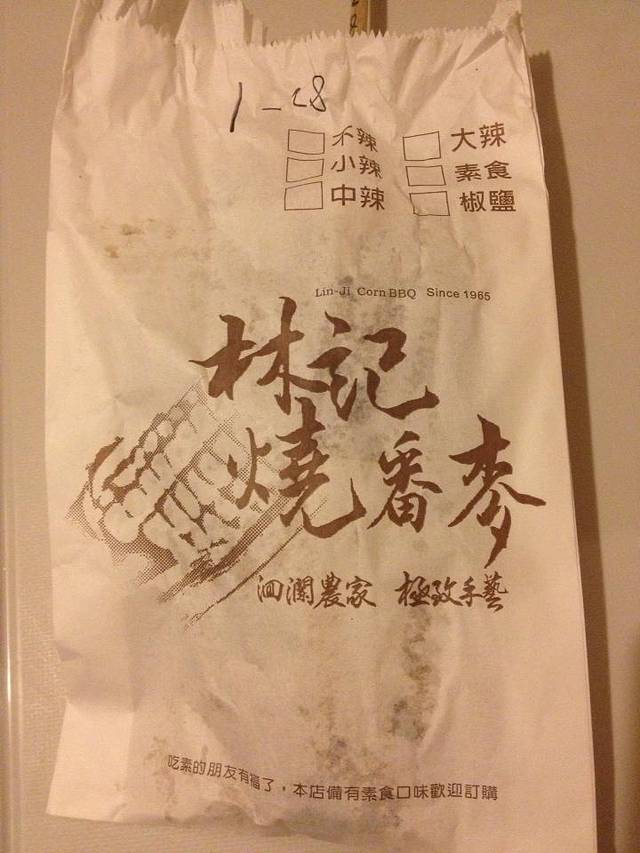 1-28
不辣 大辣
小辣 素食
中辣 椒鹽
Lin-Ji Corn BBQ Since 1965
林記
燒番麥
泗瀾農家 極致手藝
吃素的朋友有福了，本店備有素食口味歡迎訂購